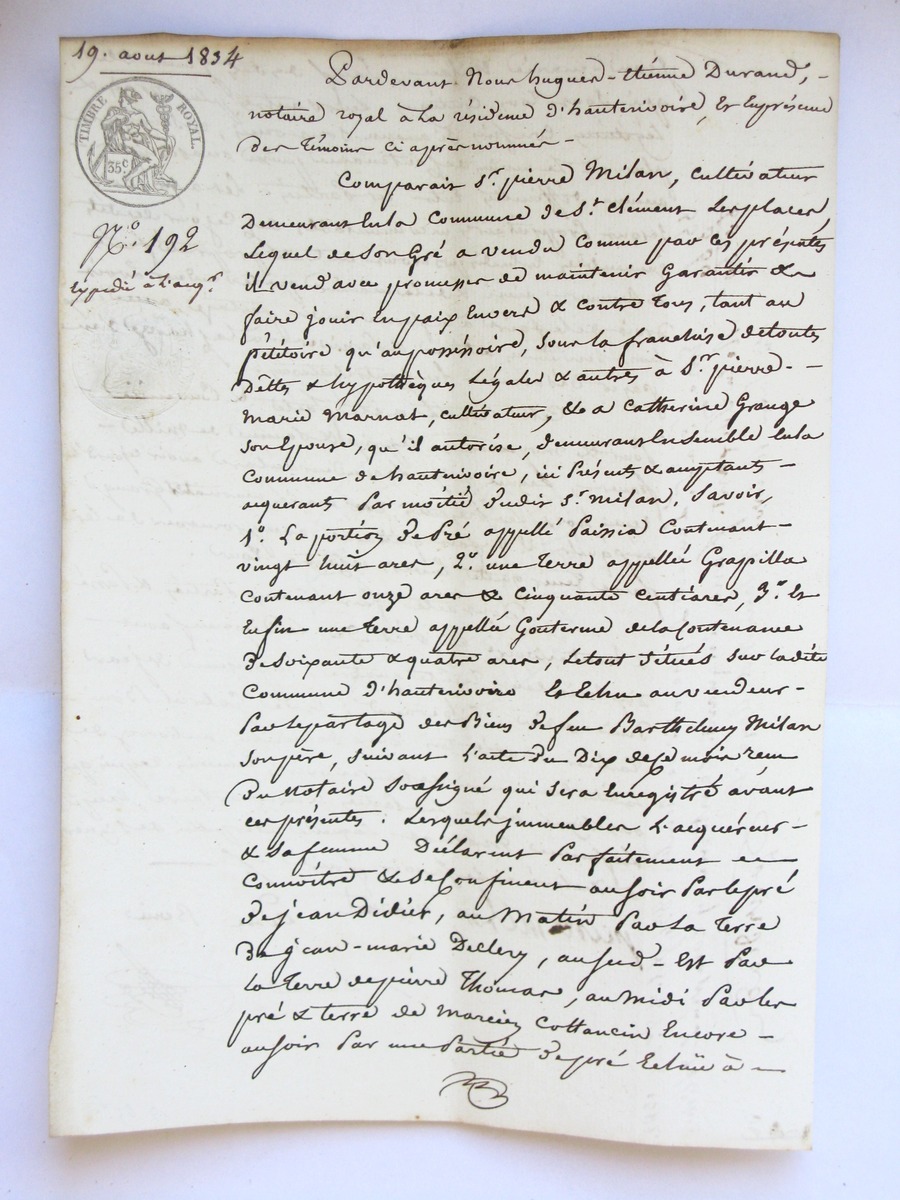 19. aout 1834
TIMBRE ROYAL.
35c
N.o 192
Expédié à l'acq.r
Pardevant Nous hugues-étienne Durand, -
notaire royal à La résidence d'hauterivoire, Et En présence
des témoins ci après nommés -
Comparait S.r pierre Milan, cultivateur
Demeurant En la Commune de St. clément Les places
Lequel de Son Gré a vendu comme par ces présentes
il vend avec promesses de maintenir Garantir &
faire jouir En paix Envers & contre tous, tant au
pétitoire qu'au possessoire, Sous la franchise de toutes
Dettes & hypothèques Légales & autres à S.r pierre -
Marie Marnat, cultivateur, & a Catherine Grange
Son Epouse, qu'il autorise, demeurant Ensemble En la
Commune de hauterivoire, ici Présents & acceptants -
acquerants Par moitié dudit S.r Milan, Savoir,
1.o La portion de Pré appellé Paissia Contenant -
vingt huit ares, 2.o une terre appellée Grapilla
Contenant onze ares & cinquante centiares, 3.o Et
Enfin une terre appellée Gouterme de la Contenance
de Soixante & quatre ares, Le tout Situés Sur la dite
Commune d'hauterivoire Et Echu au vendeur -
Par Le partage des Biens de feu Barthelemy Milan
Son père, Suivant L'acte du Dix de Ce mois reçu
Du Notaire Soussigné qui Sera Enregistré avant
ces présentes. Lesquels immeubles L'acquéreur -
& Sa femme Déclarent Parfaitement
Connoître & Se Confinent au Soir Par le pré
De jean Didier, au Matin Par La Terre
De jean-marie Dellery, au Sud-Est Par
La Terre de pierre Thomas, au Midi Par les
pré & terre de Marcien Cottancin Encore -
au Soir Par une Partie de pré Echue à -